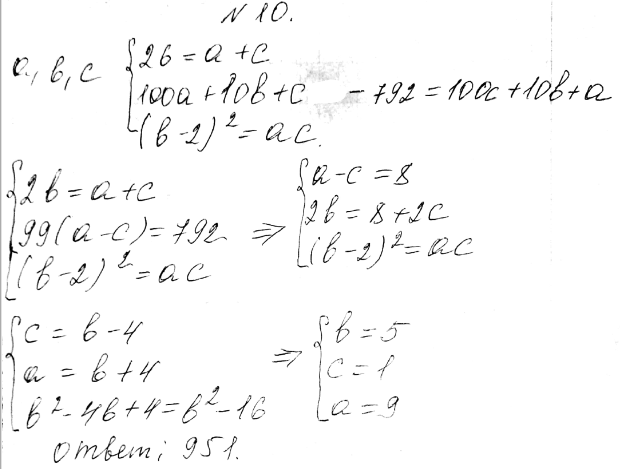 N 10.
a, b, c { 2b = a + c
100a + 10b + c - 792 = 100c + 10b + a
(b - 2)² = ac.
{ 2b = a + c
99(a - c) = 792 ⇒
(b - 2)² = ac
{ a - c = 8
2b = 8 + 2c
(b - 2)² = ac
{ c = b - 4
a = b + 4 ⇒
b² - 4b + 4 = b² - 16
{ b = 5
c = 1
a = 9
Ответ: 951.